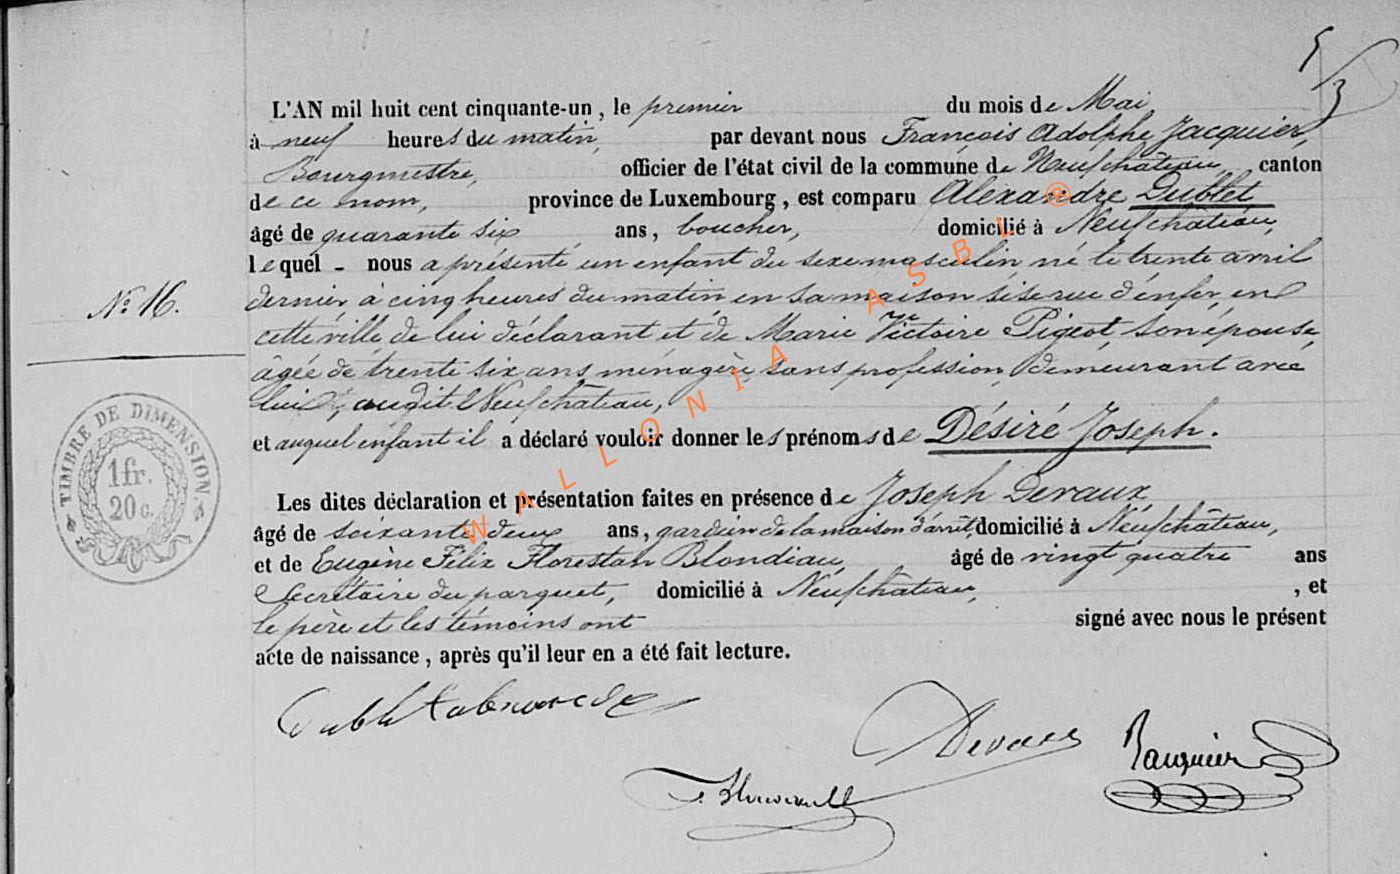 5/3
L'AN mil huit cent cinquante-un, le premier du mois de Mai,
à neuf heures du matin, par devant nous François Adolphe Jacquier,
Bourgmestre, officier de l'état civil de la commune de Neufchâteau, canton
de ce nom, province de Luxembourg, est comparu Alexandre Dublet
âgé de quarante six ans, boucher, domicilié à Neufchâteau,
lequel - nous a présenté un enfant du sexe masculin né le trente avril
N° 16.
dernier à cinq heures du matin en sa maison sise rue d'enfer en
cette ville de lui déclarant et de Marie Victoire Pigeot, son épouse,
âgée de trente six ans ménagère sans profession, demeurant avec
lui audit Neufchâteau,
et auquel enfant il a déclaré vouloir donner les prénoms de Désiré Joseph.
TIMBRE DE DIMENSION
1 fr.
20 c.
Les dites déclaration et présentation faites en présence de Joseph Devaux
âgé de soixante deux ans, gardien de la maison d'arrêt, domicilié à Neufchâteau,
et de Eugène Félix Florestan Blondiau, âgé de vingt quatre ans
Secrétaire du parquet, domicilié à Neufchâteau, , et
le père et les témoins ont signé avec nous le présent
acte de naissance, après qu'il leur en a été fait lecture.
Devaux
Jacquier
WALLONIA ASBL ®